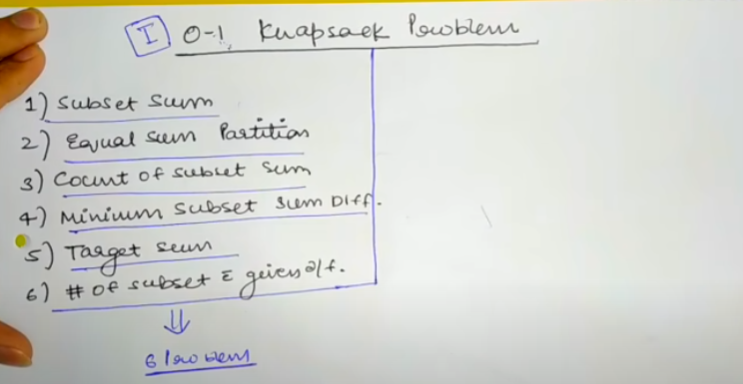 I 0-1 Knapsack Problem
1) Subset Sum
2) Equal Sum Partition
3) Count of Subset Sum
4) Minimum Subset Sum Diff.
5) Target Sum
6) # of subset & given diff.
6 Problem